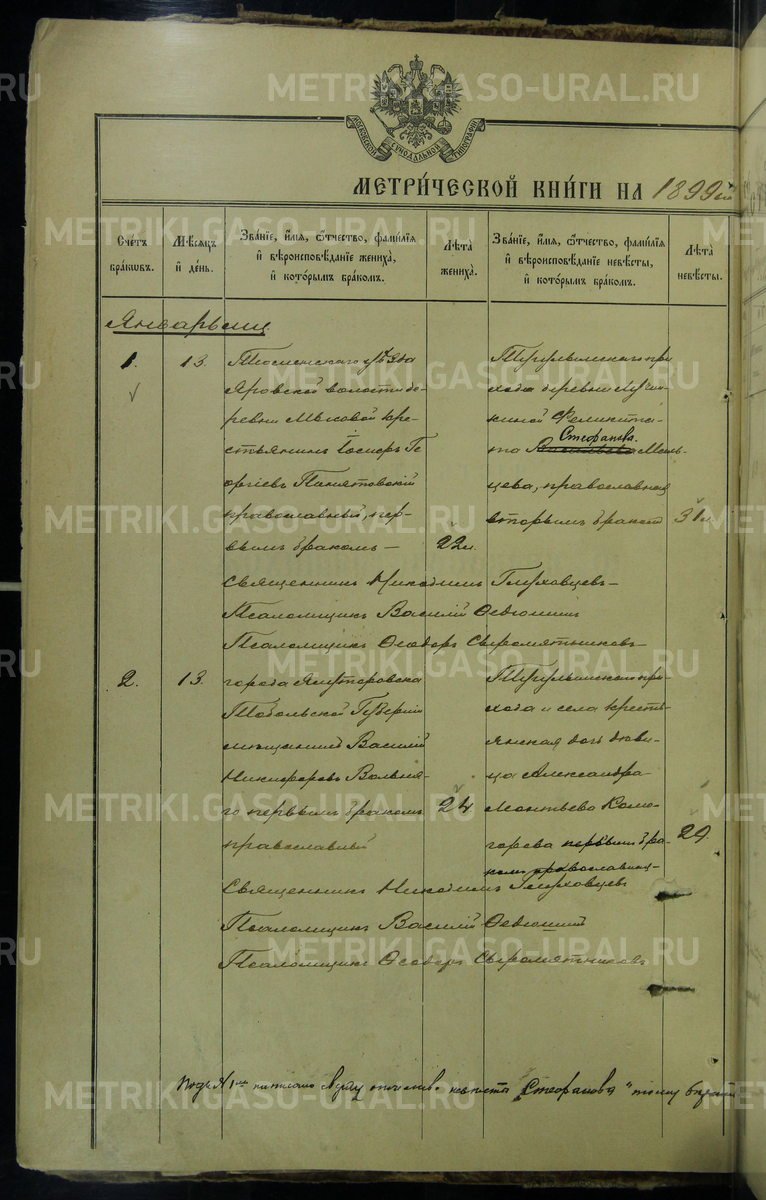 МОСКОВСКОЙ СУНОДАЛЬНОЙ ТИПОГРАФІИ
МЕТРИ́ЧЕСКОЙ КНИ́ГИ НА 1899 й
Сче́тъ бра́кѡвъ.
Мѣ́сѧцъ и҆ де́нь.
Зва́нїе, и҆́мѧ, ѻ҆́тчество, фамѵ́лїѧ
и҆ вѣроисповѣ́данїе жениха̀,
и҆ кото́рымъ бра́комъ.
Лѣ́та жениха̀.
Зва́нїе, и҆́мѧ, ѻ҆́тчество, фамѵ́лїѧ
и҆ вѣроисповѣ́данїе невѣ́сты,
и҆ кото́рымъ бра́комъ.
Лѣ́та невѣ́сты.
Январь мц.
1.
13.
Тюменскаго уѣзда
Яровской волости де-
ревни Мысовой кре-
стьянинъ Іосифъ Ге
оргіевъ Панятовскій
православный, пер-
вымъ бракомъ —
22 л.
Тугулымскаго при
хода деревни Луч
киной Феликита-
та Стефанова Маль-
цева, православная
вторымъ бракомъ
31 л
Священникъ Никодимъ Глуховцевъ
Псаломщикъ Василій Федюшинъ
Псаломщикъ Ѳеодоръ Сыромятниковъ
2.
13.
города Ялуторовска
Тобольской Губерніи
мѣщанинъ Василій
Никифоровъ Вольня-
го первымъ бракомъ
православный
24
Тугулымскаго при-
хода и села кресть
янская дочь дѣви-
ца Александра
Леонтьева Комо-
горова первымъ бра-
комъ православная
29.
Священникъ Никодимъ Глуховцевъ
Псаломщикъ Василій Федюшинъ
Псаломщикъ Ѳеодоръ Сыромятниковъ
Подъ № 1мъ написано отчество невѣсты „Стефанова" тому вѣрить
METRIKI.GASO-URAL.RU